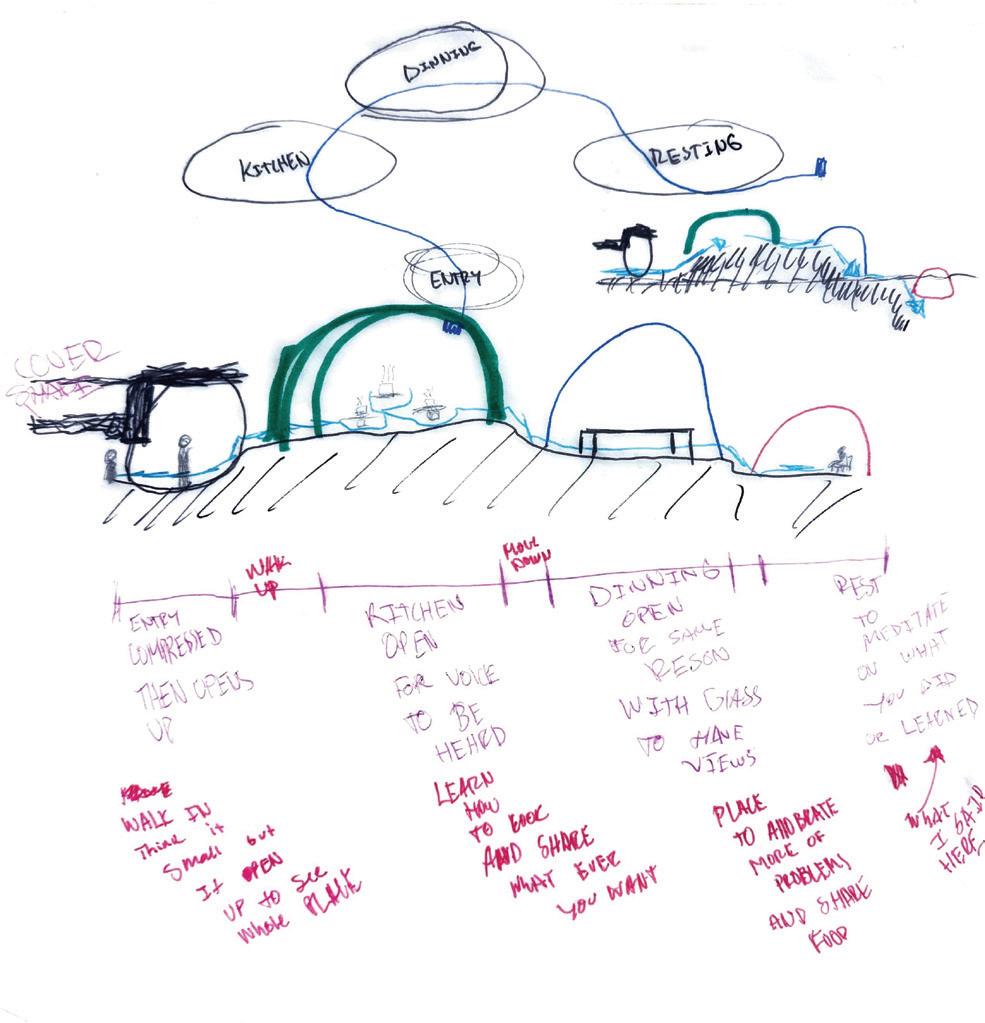 DINNING
KITCHEN
RESTING
ENTRY
COVER
SHAPE
WALK
UP
MOVE
DOWN
ENTRY
COMPRESSED
THEN OPENS
UP
KITCHEN
OPEN
FOR VOICE
TO BE
HEARD
DINNING
OPEN
FOR SAME
RESON
WITH GLASS
TO HAVE
VIEWS
REST
TO
MEDITATE
ON WHAT
YOU DID
OR LEARNED
WALK IN
Think it
Small but
It OPEN
UP to see
whole PLACE
LEARN
HOW
TO COOK
AND SHARE
WHAT EVER
YOU WANT
PLACE
TO
MORE OF
PROBLEMS
AND SHARE
FOOD
WHAT
I SAID
HERE